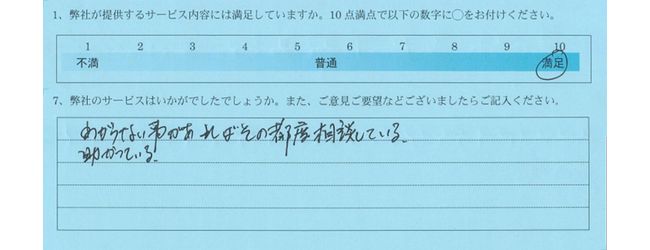 1、弊社が提供するサービス内容には満足していますか。10 点満点で以下の数字に○をお付けください。
1 2 3 4 5 6 7 8 9 10
不満 普通 満足
7、弊社のサービスはいかがでしたでしょうか。また、ご意見ご要望などございましたらご記入ください。
わからない事があればその都度相談している。
助かっている。